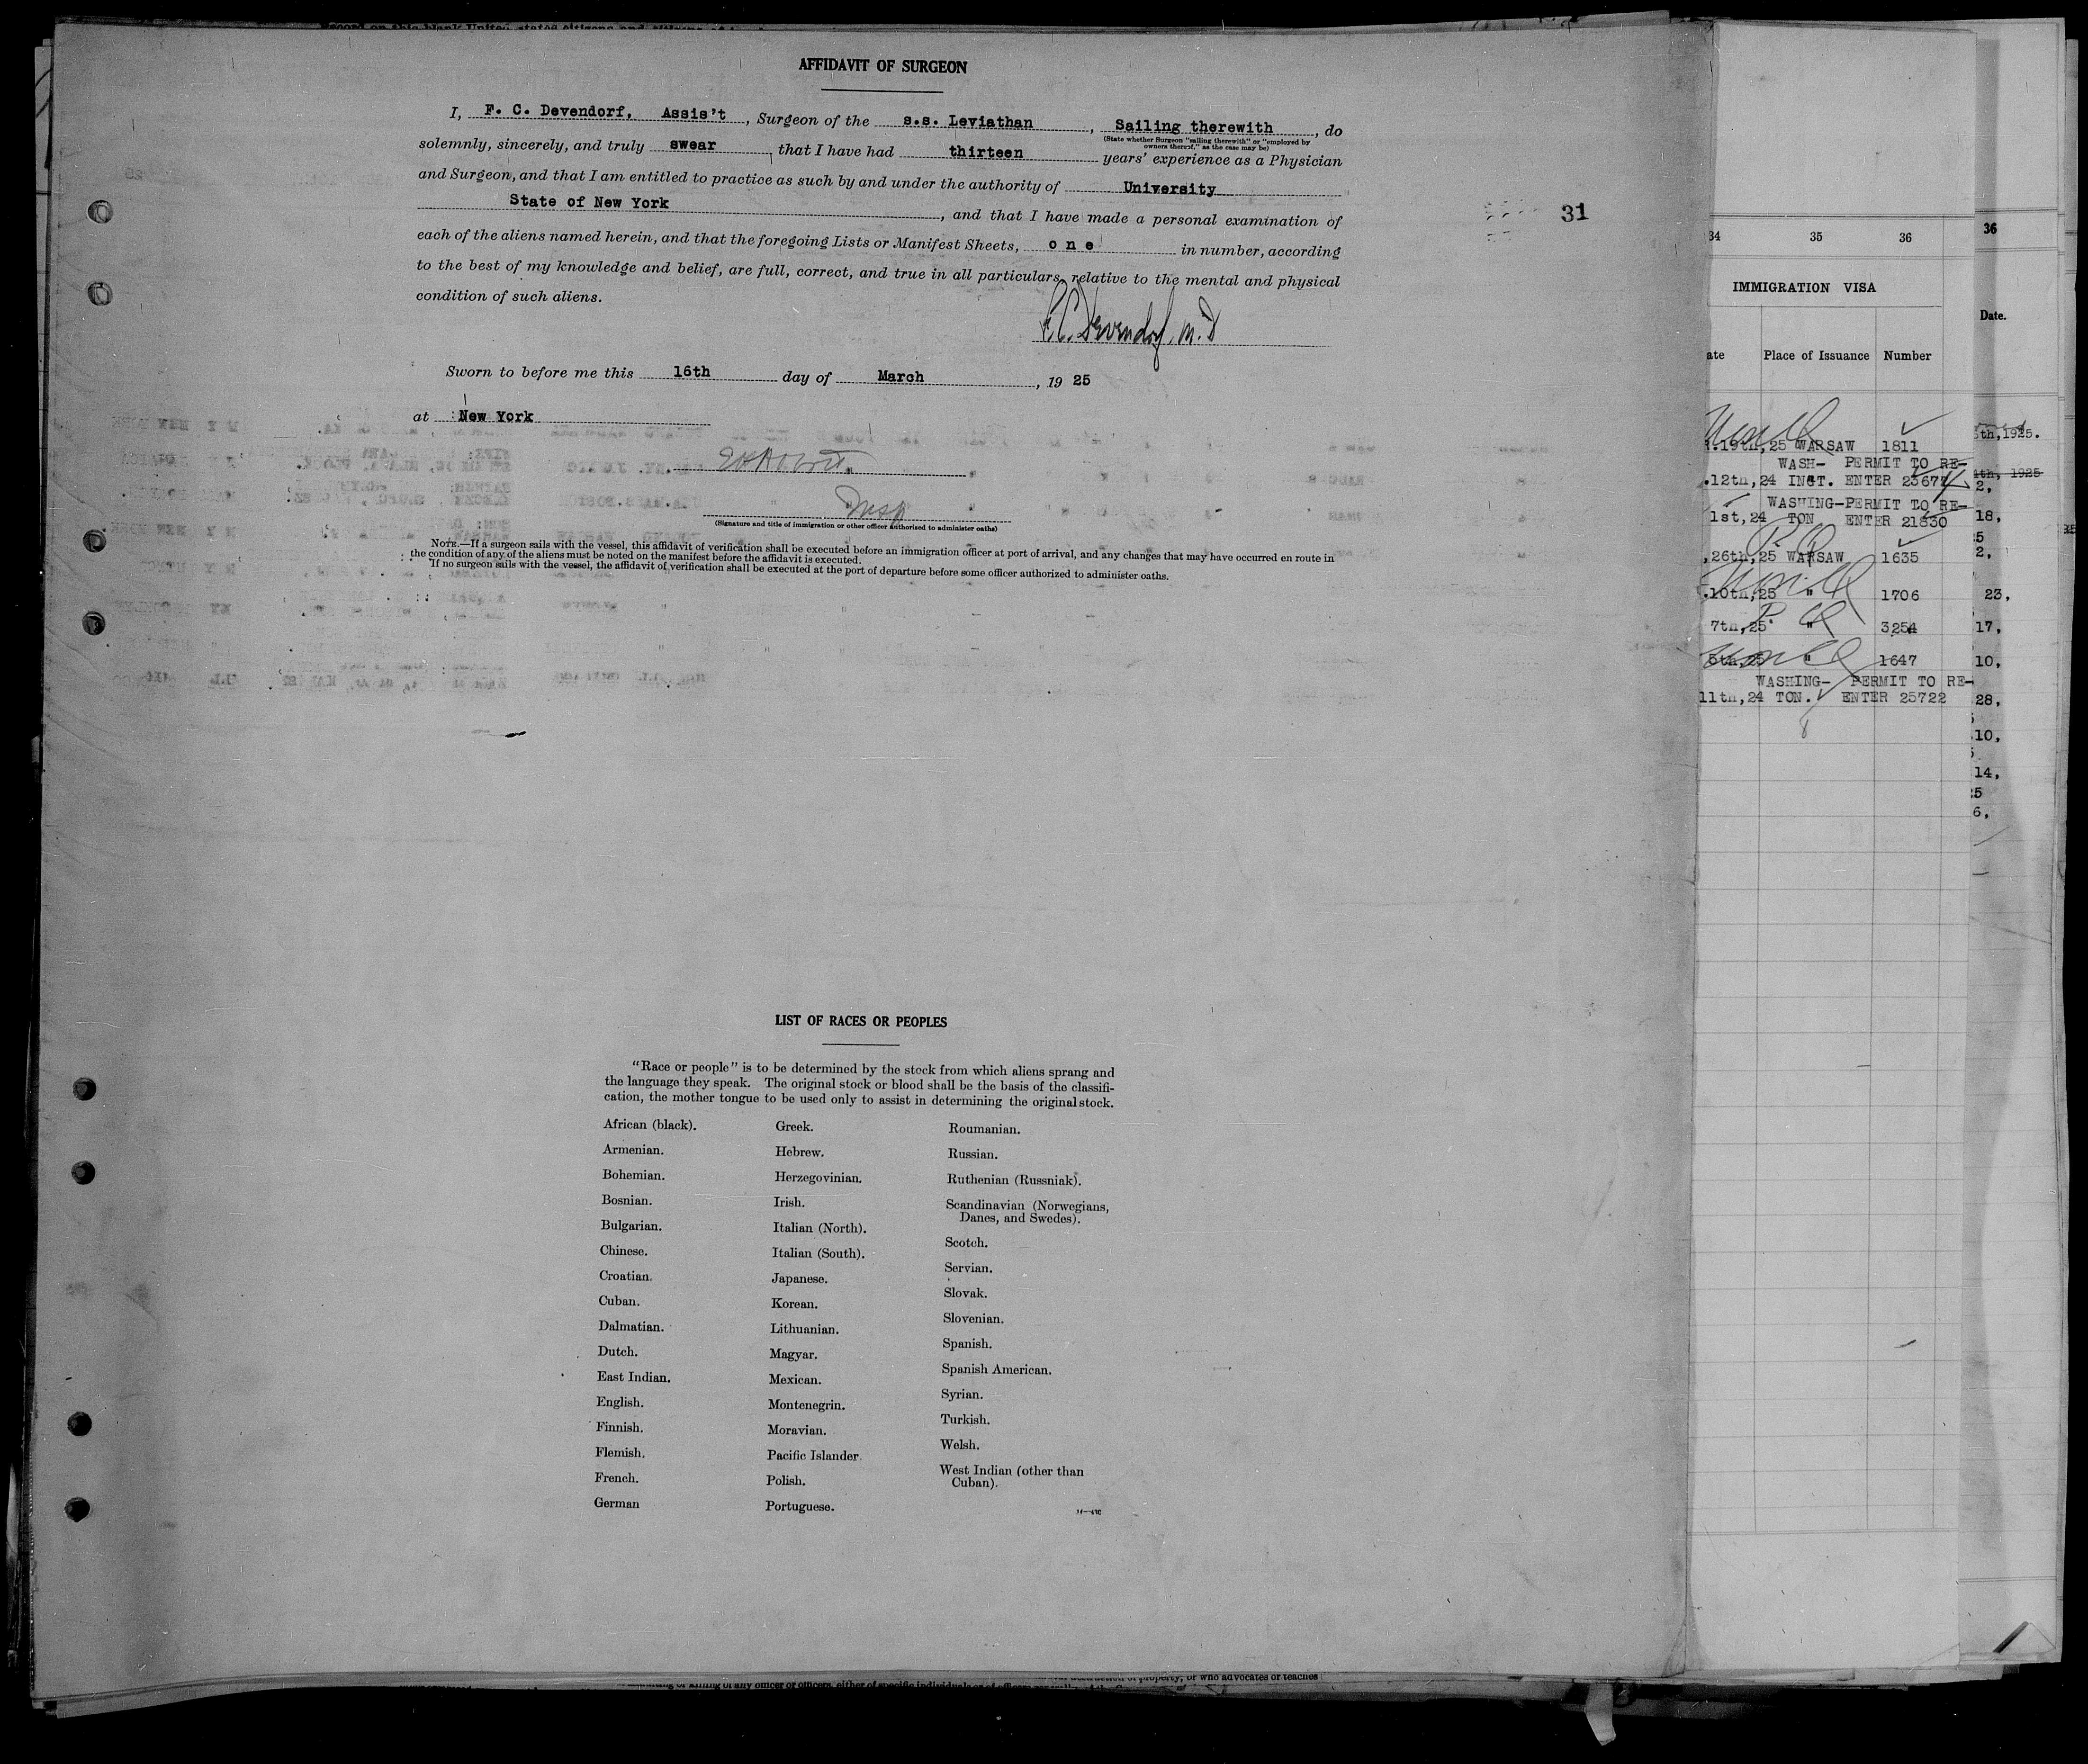 AFFIDAVIT OF SURGEON
I, F. C. Devendorf, Assis't, Surgeon of the s.s. Leviathan, Sailing therewith, do
(State whether Surgeon "sailing therewith" or "employed by
owners thereof," as the case may be)
solemnly, sincerely, and truly swear, that I have had thirteen years' experience as a Physician
and Surgeon, and that I am entitled to practice as such by and under the authority of University
State of New York, and that I have made a personal examination of
each of the aliens named herein, and that the foregoing Lists or Manifest Sheets, one in number, according
to the best of my knowledge and belief, are full, correct, and true in all particulars, relative to the mental and physical
condition of such aliens.
F.C. Devendorf, M.D
Sworn to before me this 16th day of March, 19 25
at New York
Insp
(Signature and title of immigration or other officer authorized to administer oaths)
NOTE.—If a surgeon sails with the vessel, this affidavit of verification shall be executed before an immigration officer at port of arrival, and any changes that may have occurred en route in
the condition of any of the aliens must be noted on the manifest before the affidavit is executed.
If no surgeon sails with the vessel, the affidavit of verification shall be executed at the port of departure before some officer authorized to administer oaths.
31
LIST OF RACES OR PEOPLES
"Race or people" is to be determined by the stock from which aliens sprang and
the language they speak. The original stock or blood shall be the basis of the classifi-
cation, the mother tongue to be used only to assist in determining the original stock.
African (black).
Armenian.
Bohemian.
Bosnian.
Bulgarian.
Chinese.
Croatian.
Cuban.
Dalmatian.
Dutch.
East Indian.
English.
Finnish.
Flemish.
French.
German
Greek.
Hebrew.
Herzegovinian.
Irish.
Italian (North).
Italian (South).
Japanese.
Korean.
Lithuanian.
Magyar.
Mexican.
Montenegrin.
Moravian.
Pacific Islander
Polish.
Portuguese.
Roumanian.
Russian.
Ruthenian (Russniak).
Scandinavian (Norwegians,
Danes, and Swedes).
Scotch.
Servian.
Slovak.
Slovenian.
Spanish.
Spanish American.
Syrian.
Turkish.
Welsh.
West Indian (other than
Cuban).
34 35 36
IMMIGRATION VISA
ate Place of Issuance Number
.19th,25 WARSAW 1811
WASH- PERMIT TO RE-
.12th,24 INGT. ENTER
WASHING-PERMIT TO RE-
1st,24 TON ENTER 21830
,26th,25 WARSAW 1635
.10th,25 " 1706
7th,25 " 3254
5th,25 " 1647
WASHING- PERMIT TO RE-
11th,24 TON. ENTER 25722
36
Date.
5th,1925.
4th, 1925
2,
18,
5
2,
23,
17,
10,
28,
10,
14,
5
6,
of property; or who advocates or teaches
killing of any officer or officers, either of specific individuals or of officers